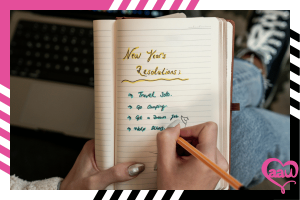 New Year's
Resolutions:
→ Travel Solo.
→ Go Camping
→ Get a Dream Job
→ Help
aaw